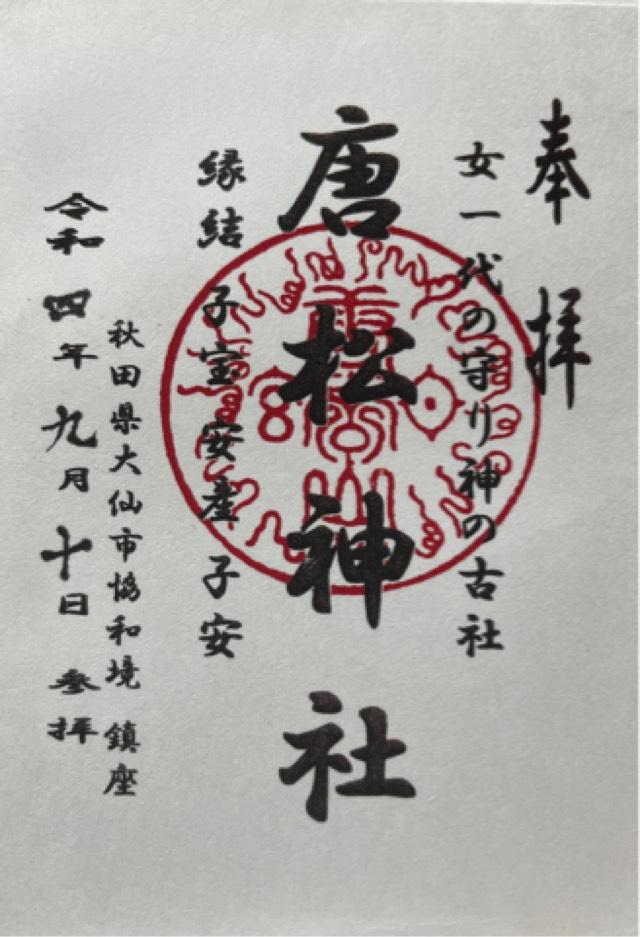 奉拝
女一代の守り神の古社
唐松神社
縁結 子宝安産子安
秋田県大仙市協和境 鎮座
令和四年九月十日 参拝